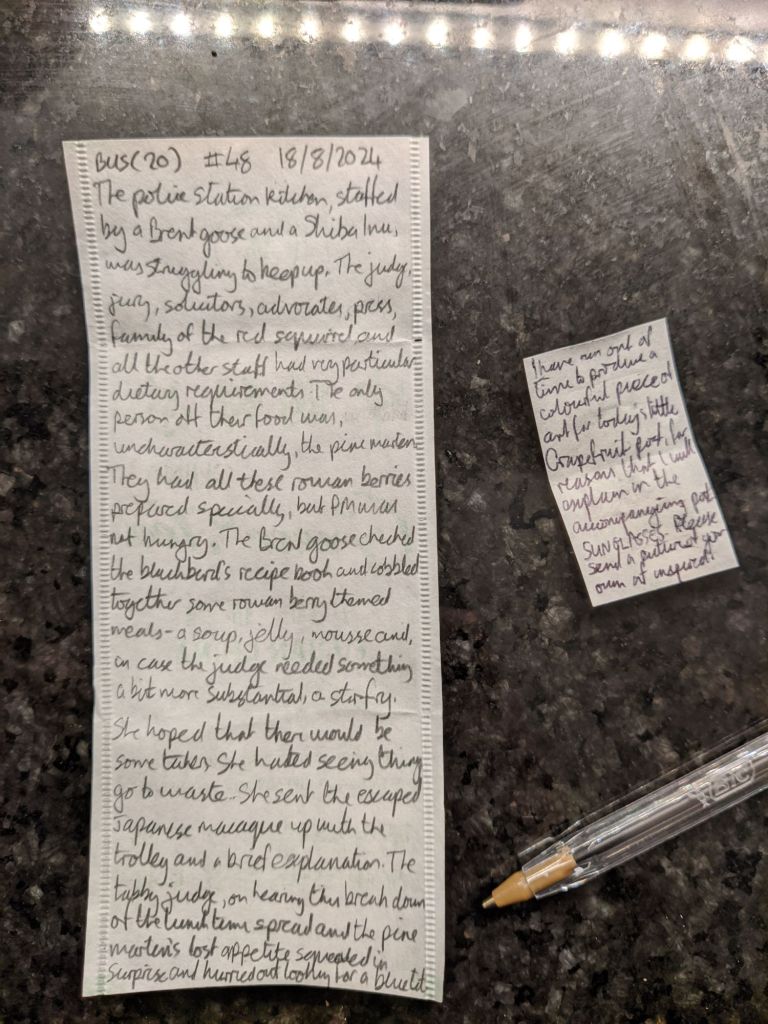 BUS(20) #48 18/8/2024
The police station kitchen, staffed
by a Brent goose and a Shiba Inu,
was struggling to keep up. The judge,
jury, solicitors, advocates, press,
family of the red squirrel and
all the other staff had very particular
dietary requirements. The only
person off their food was,
uncharacteristically, the pine marten.
They had all these rowan berries
prepared specially, but PM was
not hungry. The Brent goose checked
the blackbird's recipe book and cobbled
together some rowan berry themed
meals - a soup, jelly, mousse and,
in case the judge needed something
a bit more substantial, a stir fry.
She hoped that there would be
some takers. She hated seeing things
go to waste. She sent the escaped
Japanese macaque up with the
trolley and a brief explanation. The
tabby judge, on hearing this breakdown
of the lunchtime spread and the pine
marten's lost appetite squealed in
surprise and hurried out looking for a blue tit
I have run out of
time to produce a
colourful piece of
art for today's little
Grapefruit Post, for
reasons that I will
explain in the
accompanying post
SUNGLASSES. Please
send a picture of your
own if inspired!
BIC